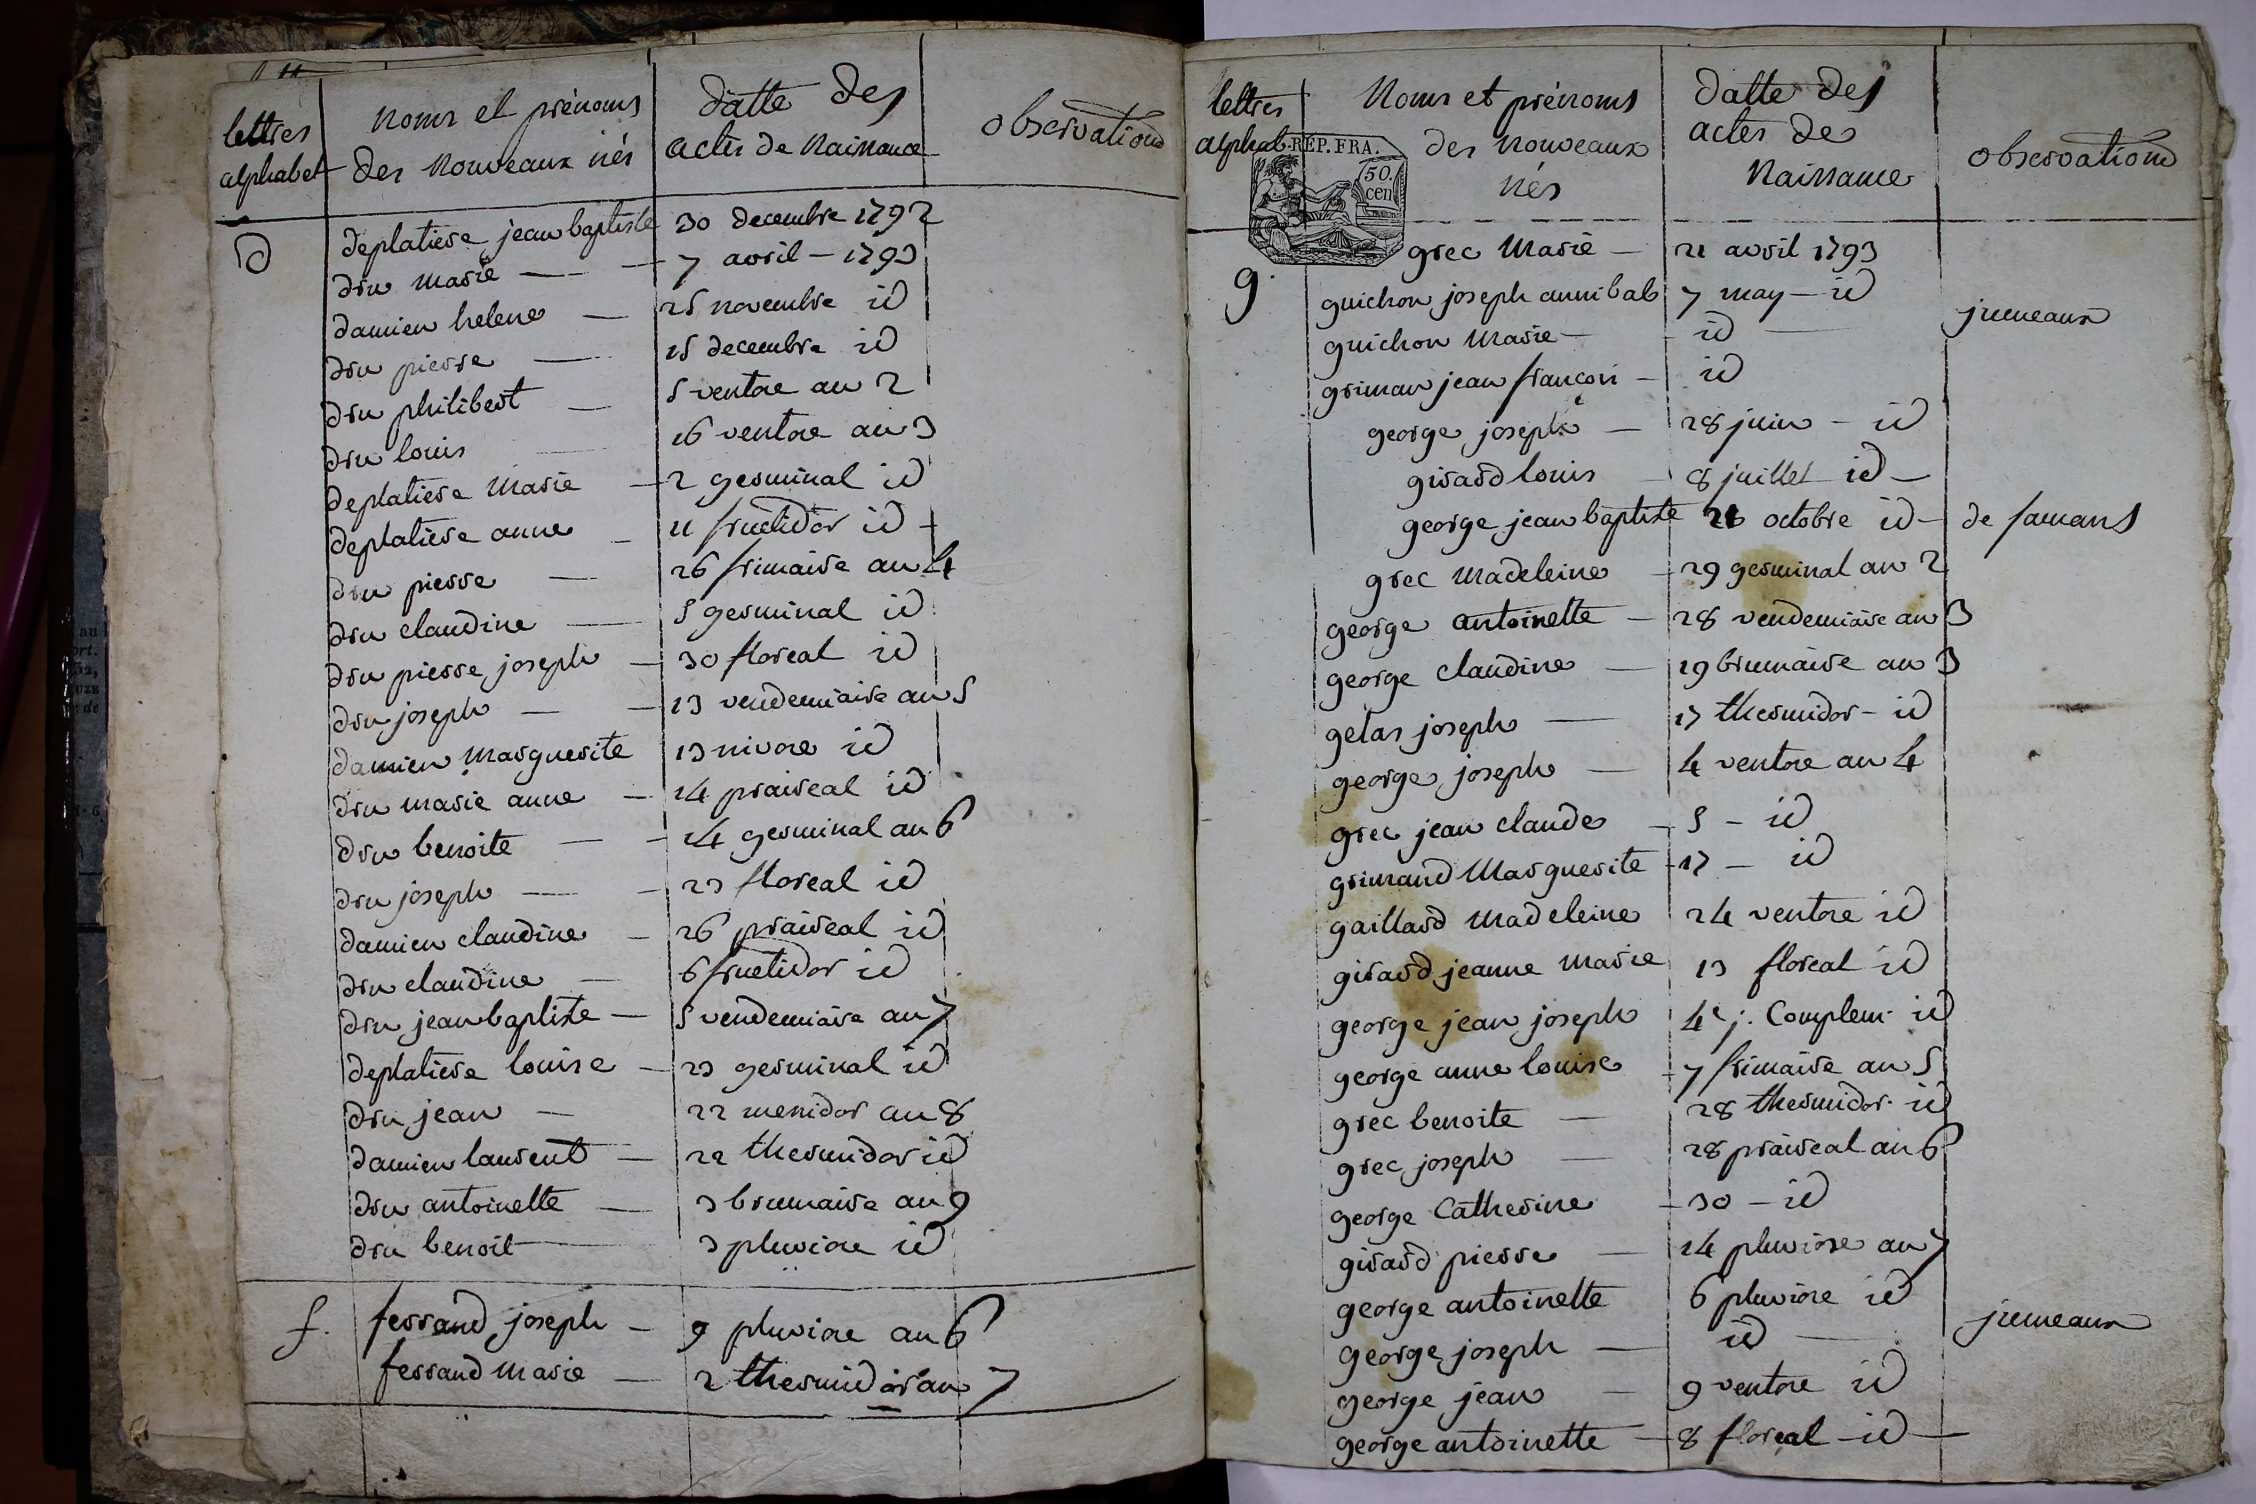 lettres alphabet
noms et prénoms des nouveaux nés
datte des actes de naissance
observations
D
deplatiere jean baptiste 30 decembre 1792
dru marie — 7 avril – 1793
damien helene — 25 novembre id
dru pierre — 15 decembre id
dru philibert — 5 ventose an 2
dru louis 16 ventose an 3
deplatiere marie — 2 germinal id
deplatiere anne — 11 fructidor id
dru pierre — 26 frimaire an 4
dru claudine — 5 germinal id
dru pierre joseph — 30 floreal id
dru joseph — 13 vendemiaire an 5
damien marguerite 13 nivose id
dru marie anne — 14 praireal id
dru benoite — 14 germinal an 6
dru joseph — 23 floreal id
damien claudine — 26 prairéal id
dru claudine — 6 fructidor id
dru jean baptiste — 5 vendemiaire an 7
deplatiere louise — 23 germinal id
dru jean — 22 messidor an 8
damien laurent — 22 thermidor id
dru antoinette — 3 brumaire an 9
dru benoit — 3 pluviose id
f. ferrand joseph — 9 pluviose an 6
ferrand marie — 2 thermidor an 7
lettres alphab.
Noms et prénoms des nouveaux nés
datte des actes de Naissance
observations
RÉP. FRA.
50. cen
g.
grec Marie — 21 avril 1793
guichon joseph annibal 7 may – id
guichon Marie — id — jumeaux
griman jean françois — id
george joseph — 28 juin – id
girard louis 8 juillet id –
george jean baptiste octobre id – de
grec Madeleine — 29 germinal an 2
george antoinette — 28 vendemiaire an 3
george claudine — 19 brumaire an 3
gelas joseph — 17 thermidor – id
george joseph — 4 ventose an 4
grec jean claude — 5 – id
grimand Marguerite — 17 – id
gaillard Madeleine 24 ventose id
girard jeanne Marie 13 floreal id
george jean joseph 4e j. Complem. id
george anne louise — 7 frimaire an 5
grec benoite — 28 thermidor id
grec joseph — 28 prairéal an 6
george Catherine — 30 – id
girard pierre — 14 pluviose an 7
george antoinette 6 pluviose id
george joseph — id — jumeaux
george jean — 9 ventose id
george antoinette — 8 floreal – id —